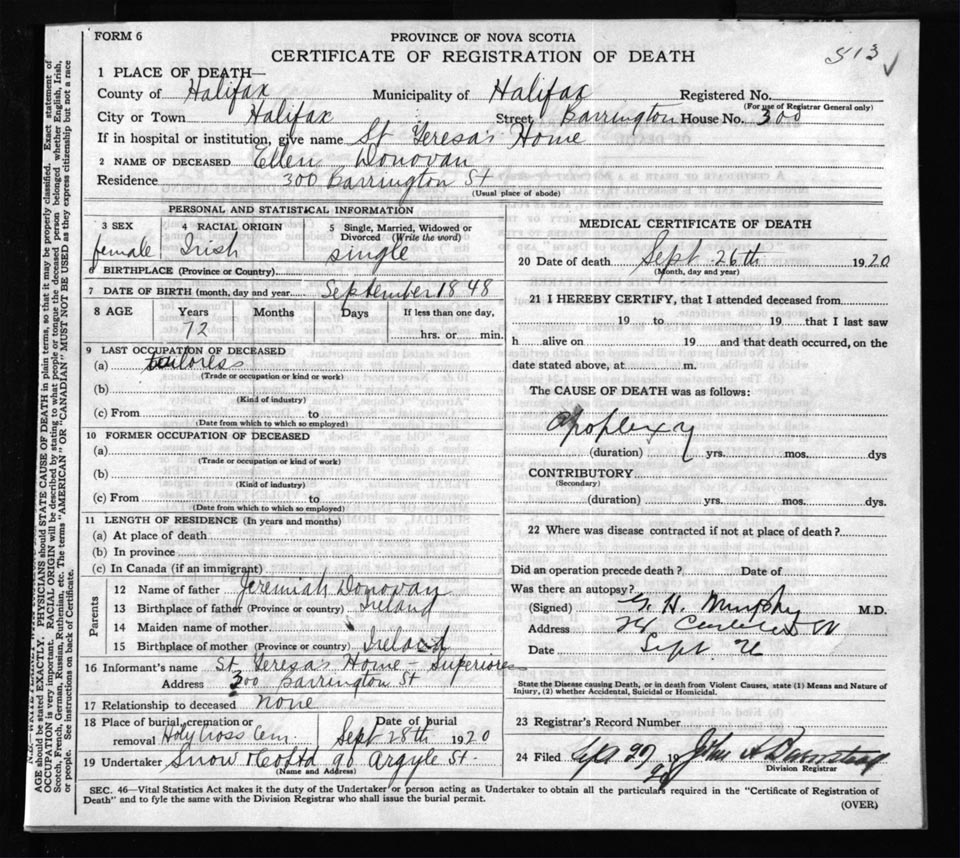 FORM 6
PROVINCE OF NOVA SCOTIA
513
CERTIFICATE OF REGISTRATION OF DEATH
1 PLACE OF DEATH—
County of Halifax Municipality of Halifax Registered No.
(For use of Registrar General only)
City or Town Halifax Street Barrington House No. 300
If in hospital or institution, give name St Teresa's Home
2 NAME OF DECEASED Ellen Donovan
Residence 300 Barrington St
(Usual place of abode)
PERSONAL AND STATISTICAL INFORMATION
3 SEX 4 RACIAL ORIGIN 5 Single, Married, Widowed or Divorced (Write the word)
female Irish single
6 BIRTHPLACE (Province or Country)
7 DATE OF BIRTH (month, day and year) September 1848
8 AGE Years Months Days If less than one day,
72 hrs. or min.
9 LAST OCCUPATION OF DECEASED
(a) tailoress
(Trade or occupation or kind or work)
(b)
(Kind of industry)
(c) From to
(Date from which to which so employed)
10 FORMER OCCUPATION OF DECEASED
(a)
(Trade or occupation or kind of work)
(b)
(Kind of industry)
(c) From to
(Date from which to which so employed)
11 LENGTH OF RESIDENCE (In years and months)
(a) At place of death
(b) In province
(c) In Canada (if an immigrant)
Parents
12 Name of father Jeremiah Donovan
13 Birthplace of father (Province or country) Ireland
14 Maiden name of mother
15 Birthplace of mother (Province or country) Ireland
16 Informant's name St. Teresa's Home - Superioress
Address 300 Barrington St
17 Relationship to deceased none
18 Place of burial, cremation or removal Holy Cross Cem. Date of burial Sept 28th 1920
19 Undertaker Snow & Co Ltd 90 Argyle St.
(Name and Address)
MEDICAL CERTIFICATE OF DEATH
20 Date of death Sept 26th 1920
(Month, day and year)
21 I HEREBY CERTIFY, that I attended deceased from
19 to 19 that I last saw
h alive on 19 and that death occurred, on the
date stated above, at m.
The CAUSE OF DEATH was as follows:
Apoplexy
(duration) yrs. mos. dys
CONTRIBUTORY
(Secondary)
(duration) yrs. mos. dys.
22 Where was disease contracted if not at place of death?
Did an operation precede death? Date of
Was there an autopsy?
(Signed) G. H. Murphy M.D.
Address
Date Sept.
State the Disease causing Death, or in death from Violent Causes, state (1) Means and Nature of Injury, (2) whether Accidental, Suicidal or Homicidal.
23 Registrar's Record Number
24 Filed John A
Division Registrar
SEC. 46—Vital Statistics Act makes it the duty of the Undertaker or person acting as Undertaker to obtain all the particulars required in the "Certificate of Registration of
Death" and to fyle the same with the Division Registrar who shall issue the burial permit.
(OVER)
AGE should be stated EXACTLY. PHYSICIANS should STATE CAUSE OF DEATH in plain terms, so that it may be properly classified. Exact statement of
OCCUPATION is very important. RACIAL ORIGIN will be described by stating to what people or tongue the deceased person belonged whether English, Irish,
Scotch, French, German, Russian, Ruthenian, etc. The terms "AMERICAN" OR "CANADIAN" MUST NOT BE USED as they express citizenship but not a race
or people. See instructions on back of Certificate.